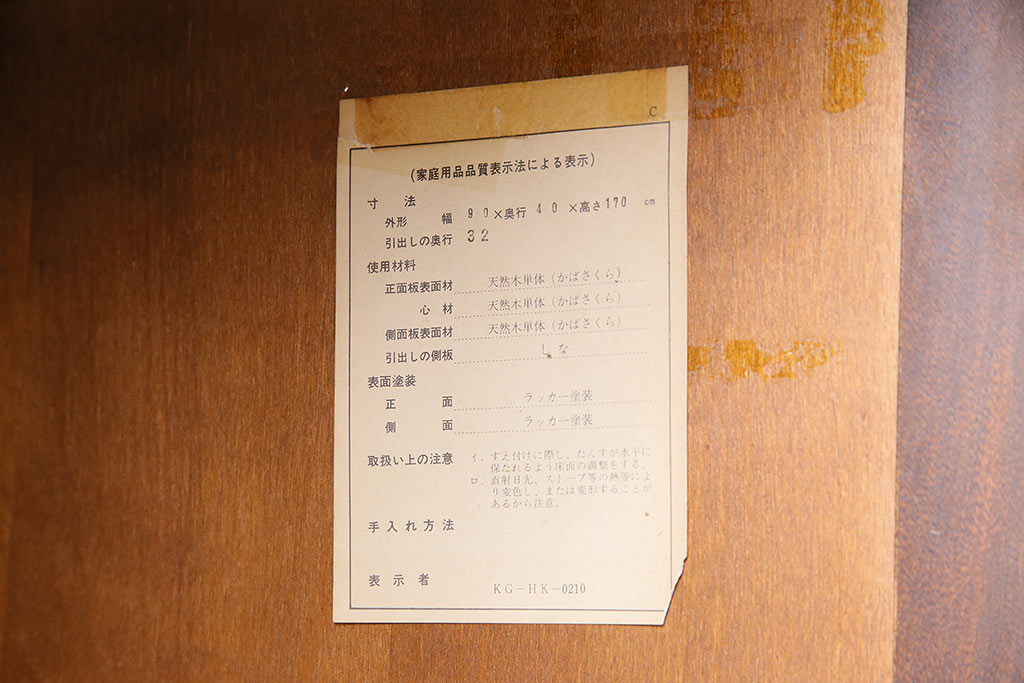 C
(家庭用品品質表示法による表示)
寸法
外形 幅 90×奥行 40 ×高さ170 cm
引出しの奥行 32
使用材料
正面板表面材 天然木単体(かばさくら)
心材 天然木単体(かばさくら)
側面板表面材 天然木単体(かばさくら)
引出しの側板 しな
表面塗装
正面 ラッカー塗装
側面 ラッカー塗装
取扱い上の注意 イ. すえ付けに際し、たんすが水平に
保たれるよう床面の調整をする。
ロ. 直射日光、ストーブ等の熱等によ
り変色し、または変形することが
あるから注意。
手入れ方法
表示者 KG-HK-0210